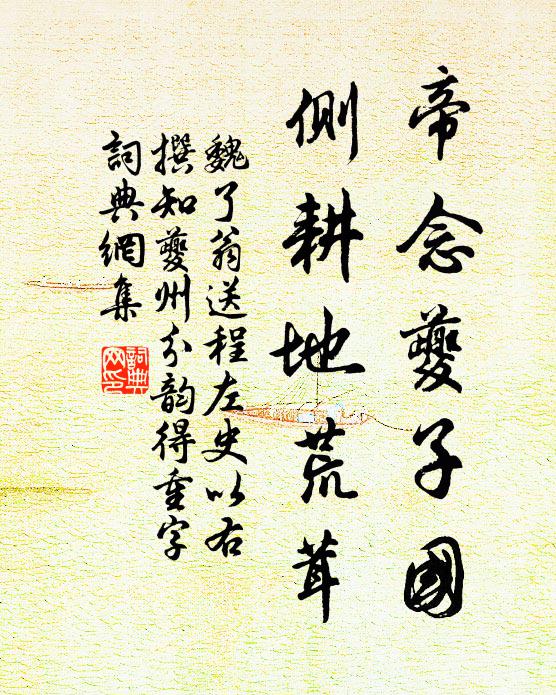 帝念夔子國
側耕地荒茸
魏了翁送程左史以右
撰知夔州分韵得重字
詞典網集
詞典
网印